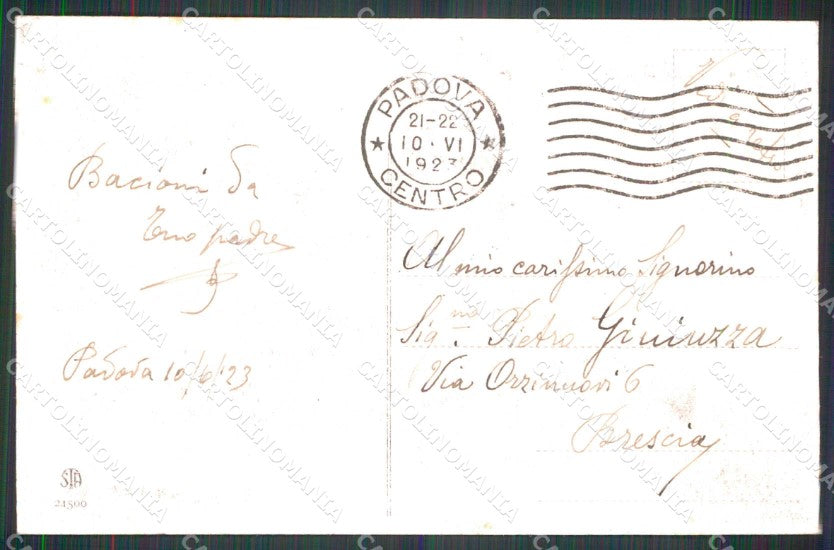 PADOVA
21-22
10 · VI
1923
CENTRO
Bacioni da
tuo padre
Padova 10/6/23
Al mio carissimo Signorino
Sig.no Pietro
Via Orzinuovi 6
Brescia
STA
24500
CARTOLINOMANIA